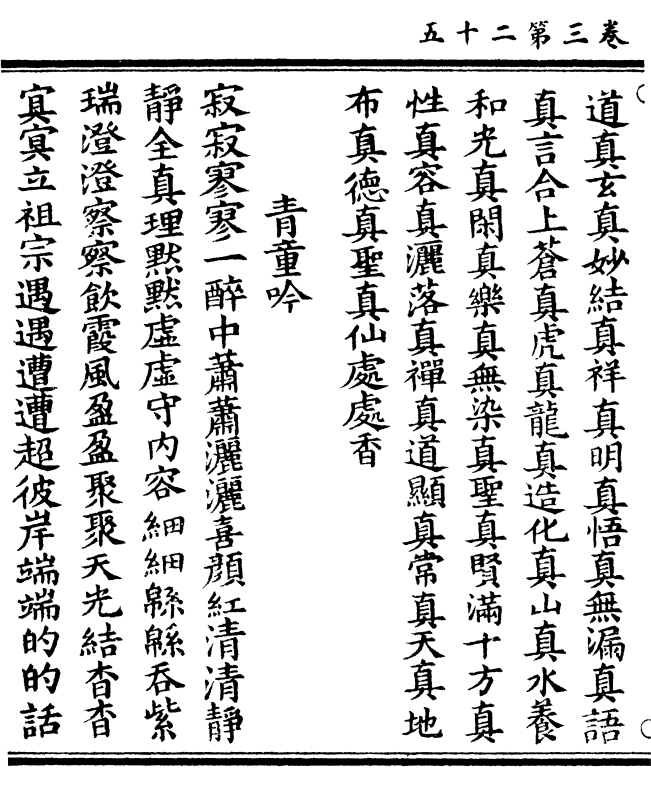 卷三第二十五
道真玄真妙結真祥真明真悟真無漏真語
真言合上蒼真虎真龍真造化真山真水養
和光真閑真樂真無染真聖真賢滿十方真
性真容真灑落真禪真道顯真常真天真地
布真德真聖真仙處處香
青童吟
寂寂寥寥一醉中蕭蕭灑灑喜顏紅清清靜
靜全真理黙黙虛虛守內容細細緜緜吞紫
瑞澄澄察察飲霞風盈盈聚聚天光結杳杳
冥冥立祖宗遇遇遭遭超彼岸端端的的話